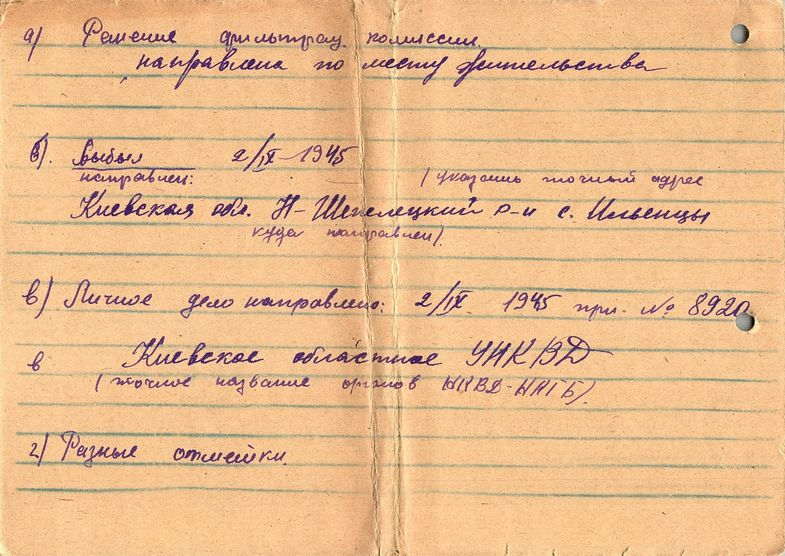 а) Решение фильтрац. комиссии
направлена по месту жительства
б). выбыл 2/IX-1945
направлен: (указать точный адрес
Киевская обл. Н-Шепелецкий р-н с. Ильенцы
куда направлен).
в) Личное дело направлено: 2/IX. 1945 при. № 8920
в Киевское областное УНКВД
(точное название органов НКВД-НКГБ).
г) Разные отметки.